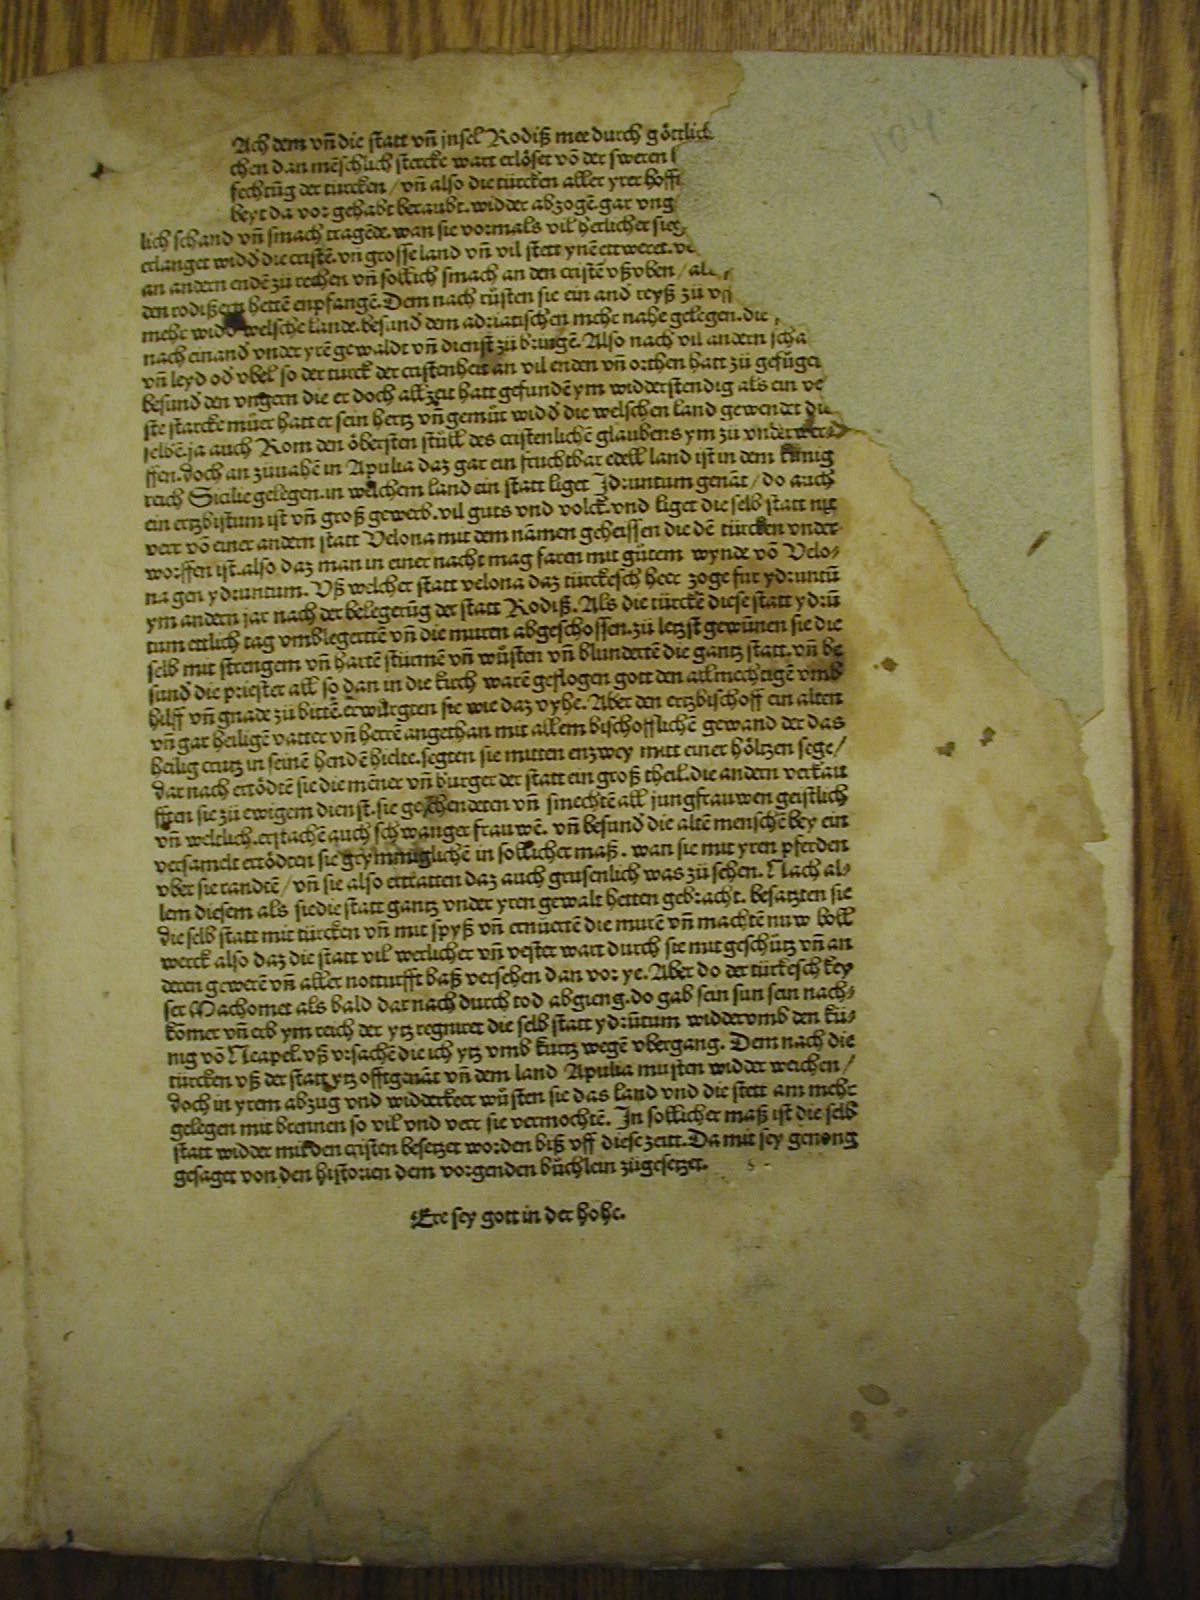 Ach dem vn̄ die statt vn̄ jnsel Rodiß mee durch göttlich
chen dan mēschlich stercke wart erlöset vō der sweren
fechtūg der türcken / vn̄ also die türcken aller yrer hoff
beyt da vor gehabt beraubt. widder abzogē. gar vng
lich schand vn̄ smach tragēde. wan sie vormals vil herlicher sieg
erlanget widd̄ die cristē. vn̄ grosse land vn̄ vil stett ynē ettweret.
an andern endē zü rechen vn̄ sollich smach an den cristē vßvben /
den rodißern hettē enpfangē. Dem nach rüsten sie ein and̄ reyß zü
mehr widd̄ welsche lande. besund̄ dem adriatischen mehr nahe gelegen. die
nach einand̄ vnder yrē gewaldt vn̄ dienst zü bringē. Also nach vil andern scha
vn̄ leyd od̄ vbel so der türck der cristenheit an vil enden vn̄ orthen hatt zü gefüget
besund̄ den vngern die er doch allzeit hatt gefundē ym widderstendig als ein ve
ste starcke müer hatt er sein hertz vn̄ gemüt widd̄ die welschen land gewendet die
selbē. ja auch Rom den öbersten stüll des cristenlichē glaubens ym zü vnderwer
ffen. doch an züuahē in Apulia daz gar ein fruchtbar edell land ist in dem künig
reich Sicilie gelegen. in welchem land ein statt liget Jdruntum genāt / do auch
ein ertzbistum ist vn̄ groß gewerb. vil guts vnd volck. vnd liget die selb statt nit
verr vō einer andern statt Velona mit dem namen geheissen die dē türcken vnder
worffen ist. also daz man in einer nacht mag faren mit gütem wynde vō Velo-
na gen ydruntum. Vß welcher statt velona daz türckesch heer zoge fur ydruntū
ym andern jar nach der belegerūg der statt Rodiß. Als die türckē diese statt ydrū
tum ettlich tag vmblegertē vn̄ die muren abgeschossen. zü letzst gewūnen sie die
selb mit strengem vn̄ hartē stürmē vn̄ wüsten vn̄ blundertē die gantz statt. vn̄ be
sund̄ die priester all so dan in die kirch warē geflogen gott den allmechtigē vmb
hilff vn̄ gnade zü bittē. erwürgten sie wie daz vyhe. Aber den ertzbischoff ein alten
vn̄ gar heiligē vatter vn̄ herrē angethan mit allem bischofflichē gewand der das
heilig crütz in seinē hendē hielte. segten sie mitten enzwey mit einer höltzen sege /
dar nach ertödtē sie die mēner vn̄ burger der statt ein groß theil. die andern verkau
fften sie zü ewigem dienst. sie geschendeten vn̄ smechtē all jungfrauwen geistlich
vn̄ weltlich. erstachē auch schwanger frauwē. vn̄ besund̄ die altē menschē bey ein
versamelt ertödten sie grymmiglichē in sollicher maß. wan sie mit yren pferden
vber sie randtē / vn̄ sie also ertratten daz auch grusenlich was zü sehen. Nach al-
lem diesem als sie die statt gantz vnder yren gewalt hetten gebracht. besatzten sie
die selb statt mit türcken vn̄ mit spyß vn̄ ernüertē die murē vn̄ machtē nuw boll
werck also daz die statt vil werlicher vn̄ vester wart durch sie mit geschütz vn̄ an
deren gewerē vn̄ aller notturfft baß versehen dan vor ye. Aber do der türkesch key
ser Machomet als bald dar nach durch tod abgieng. do gab sein sun sein nach-
kōmer vn̄ erb ym reich der ytz regniret die selb statt ydrūtum widdervmb den kü-
nig vō Neapel. vß vrsachē die ich ytz vmb kurtz wegē vbergang. Dem nach die
türcken vß der statt ytz offtgenāt vn̄ dem land Apulia musten widder weichen /
doch in yrem abzug vnd widderkeer wüsten sie das land vnd die stett am mehr
gelegen mit brennen so vil vnd verr sie vermochtē. In sollicher maß ist die selb
statt widder mit den cristen besetzet worden biß vff diese zeitt. Da mit sey genong
gesaget von den historien dem vorgenden büchlein zügesetzet.
Ere sey gott in der hohe.